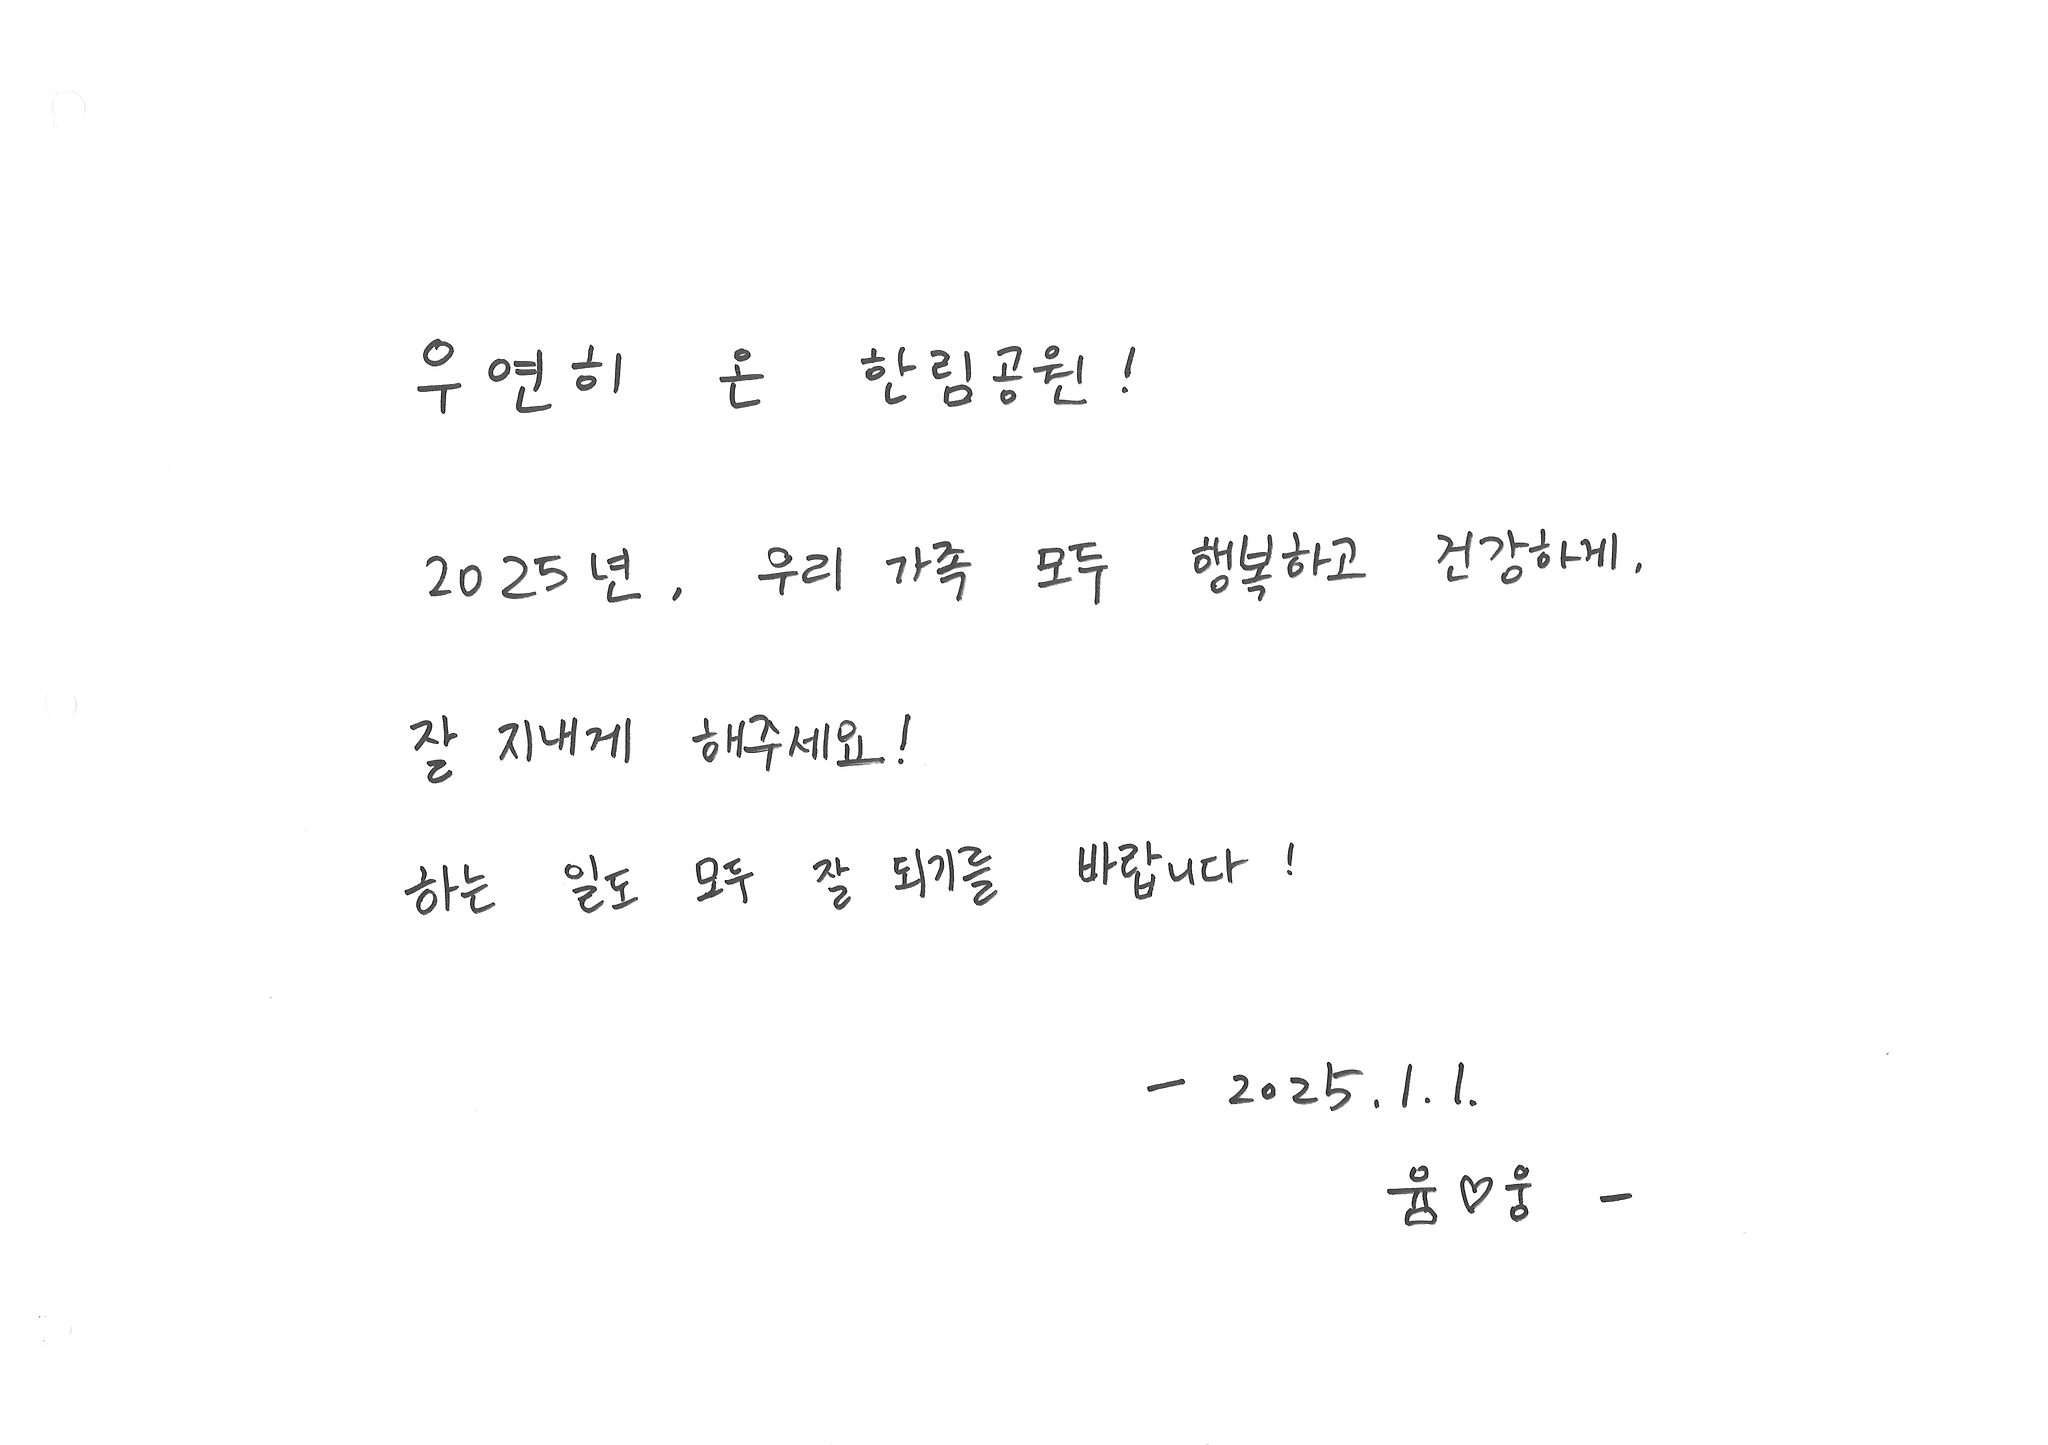 우연히 온 한림공원!
2025년, 우리 가족 모두 행복하고 건강하게,
잘 지내게 해주세요!
하는 일도 모두 잘 되기를 바랍니다!
- 2025.1.1.
윰♡웅 -